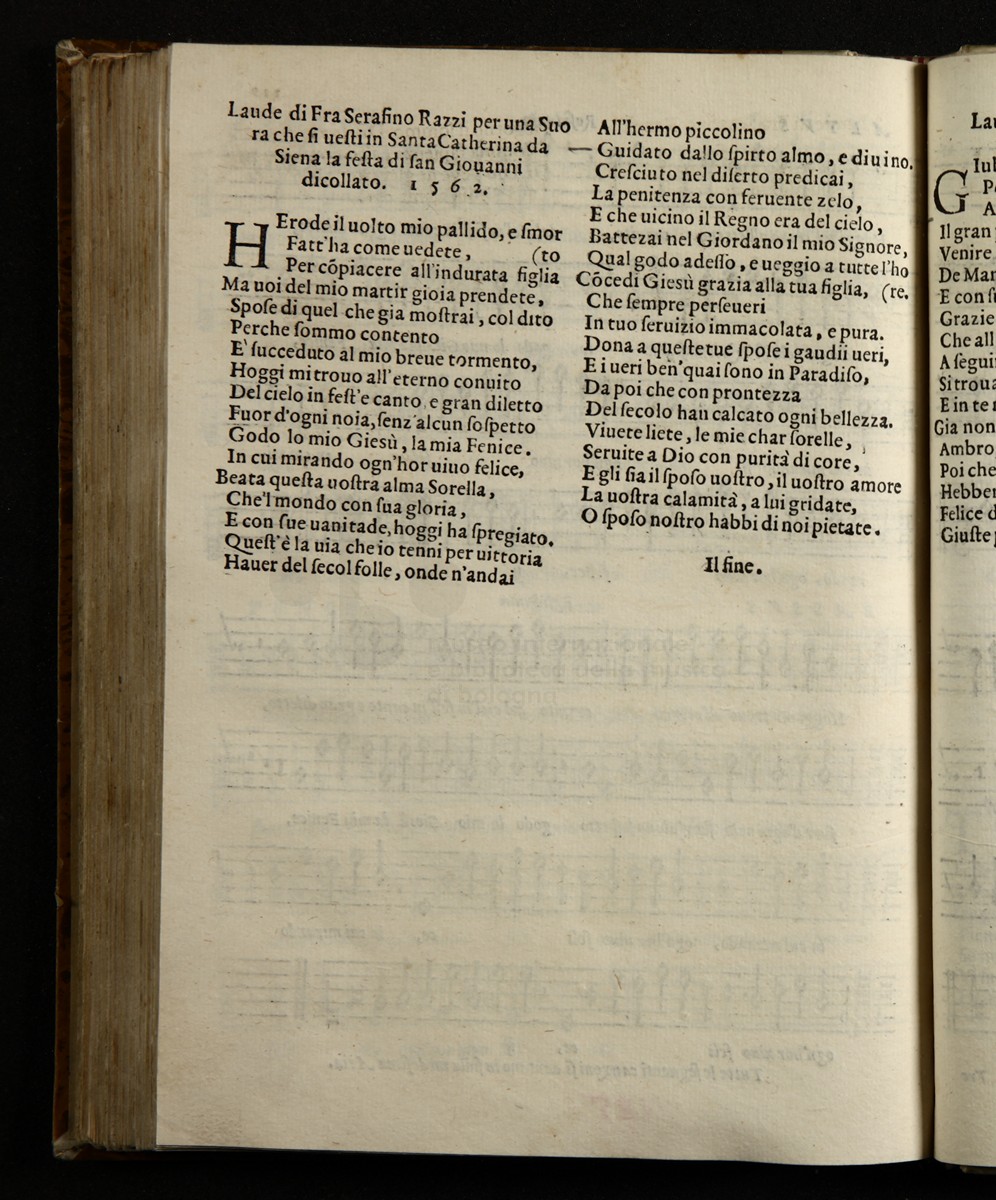 Laude di Fra Serafino Razzi per una Suo
ra che ſi ueſti in Santa Catherina da
Siena la feſta di ſan Giouanni
dicollato. 1562.
HErode il uolto mio pallido, e ſmor
Fatt'ha come uedete, (to
Per cōpiacere all'indurata figlia
Ma uoi del mio martir gioia prendete,
Spoſe di quel che gia moſtrai, col dito
Perche ſommo contento
E' ſucceduto al mio breue tormento,
Hoggi mi trouo all'eterno conuito
Del cielo in feſt'e canto e gran diletto
Fuor d'ogni noia, ſenz'alcun ſoſpetto
Godo lo mio Gieſù, la mia Fenice.
In cui mirando ogn'hor uiuo felice,
Beata queſta uoſtra alma Sorella,
Che'l mondo con ſua gloria,
E con ſue uanitade, hoggi ha ſpregiato.
Queſt'è la uia che io tenni per uittoria
Hauer del ſecol folle, onde n'andai
All'hermo piccolino
Guidato dallo ſpirto almo, e diuino.
Creſciuto nel diſerto predicai,
La penitenza con feruente zelo,
E che uicino il Regno era del cielo,
Battezai nel Giordano il mio Signore,
Qual godo adeſſo, e ueggio a tutte l'ho
Cōcedi Gieſù grazia alla tua figlia, (re.
Che ſempre perſeueri
In tuo ſeruizio immacolata, e pura.
Dona a queſte tue ſpoſe i gaudii ueri,
E i ueri ben' quai ſono in Paradiſo,
Da poi che con prontezza
Del ſecolo han calcato ogni bellezza.
Viuete liete, le mie char ſorelle,
Seruite a Dio con purità di core,
E gli ſia il ſpoſo uoſtro, il uoſtro amore
La uoſtra calamità, a lui gridate,
O ſpoſo noſtro habbi di noi pietate.
Il fine.
Lau
GIul
P
A
Il gran
Venire
De Mar
E con ſ
Grazie
Che all
A ſegui
Si troua
E in te
Gia non
Ambro
Poi che
Hebber
Felice d
Giuſte
museo internazionale
e biblioteca della musica
di bologna